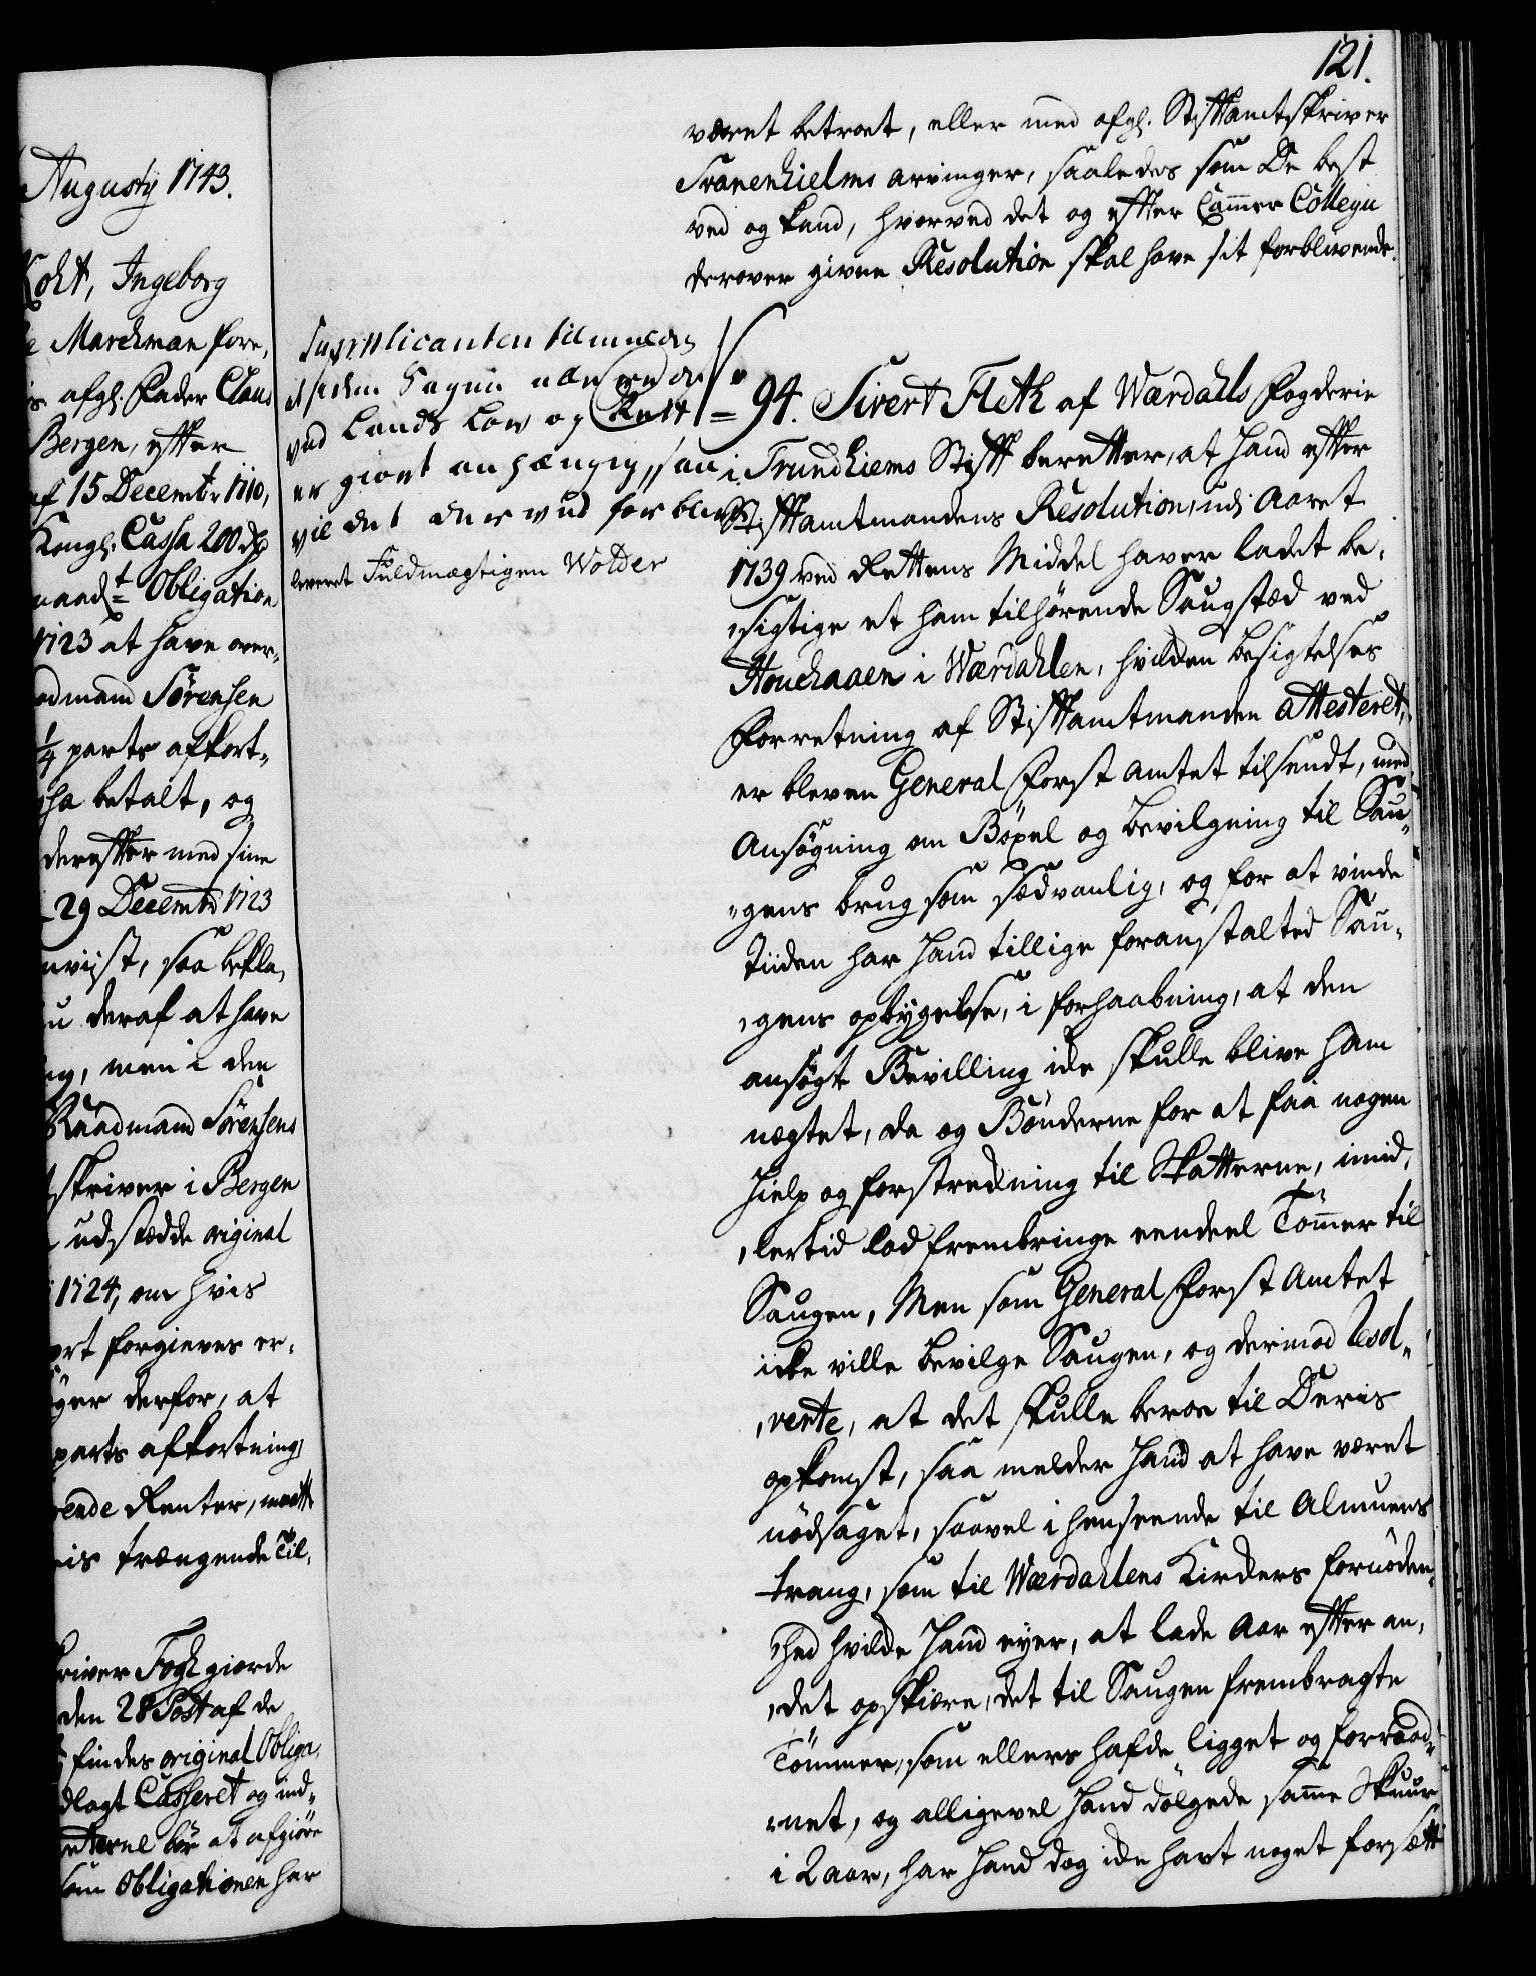 Augustÿ 1743.
Koht, Ingeborg
Marckman fore,
afgl. Fader Claus
Bergen, efter
af 15 Decembr 1710,
Kongl. Cassa 200 dr
Obligation
1723 at have over„
admand Sörensen
1/4 parts afkort„
betalt, og
derefter med sine
29 Decembr 1723
nviist, saa bekla,
deraf at have
men i den
Raadmand Sörensens
skriver i Bergen
udstædde original
1724, om hvis
forgieves er„
derfor, at
parts afkortning
Renter, maatte
trængende Til,
Fogh giorde
den 28 Post af de
findes original Obliga,
dlagt Casseret og ind„
bör at afgiöre
som Obligationen har
121.
været betroet, eller med afgl. Stiftamtskriver
Tranenhielms arvinger, saaledes som De best
ved og kand, hvorved det og efter Cammer Collegii
derover givne Resolution skal have sit forblivende.
Supplicanten tilmeldes
at siden Sagen allerede
ved Lands Lov og Rett
er giort anhængig, saa
vil det derved forblive
leveret Fuldmægtigen Wolder
94. Sivert Fleth af Wærdahls Fogderie
i Trundhiems Stift beretter, at hand efter
Stiftamtmandens Resolution, udi Aaret
1739 ved Rettens Middel haver ladet be,
„sigtige et ham tilhörende Saugstæd ved
i Wærdahlen, hvilken besigtelses
Forretning af Stiftamtmanden attesteret,
er bleven General Forst Amtet tilsendt, med
Ansögning om Böxel og bevilgning til Sau„
„gens brug som sædvanlig, og for at vinde
Tiiden har hand tillige foranstalted Sau„
„gens opbygelse, i forhaabning, at den
ansögte Bevilling icke skulle blive ham
nægtet, da og Bönderne for at faa nogen
Hielp og forstrekning til Skatterne, imid,
„lertid lod frembringe eendeel Tömmer til
Saugen, Men som General Forst Amtet
icke ville bevilge Saugen, og derimod Resol„
„verte, at det skulle beroe til Deris
opkomst, saa melder hand at have været
nödsaget, saavel i henseende til Almuens
trang, som til Wærdahlens Kirckers fornöden„
„hed hvilcke hand eyer, at lade Aar efter an,
„det opskiære, det til Saugen frembragte
Tömmer, som ellers hafde ligget og forraad„
„net, og alligevel hand dölgede samme Skuur
i 2 aar, har hand dog icke havt noget forsætt